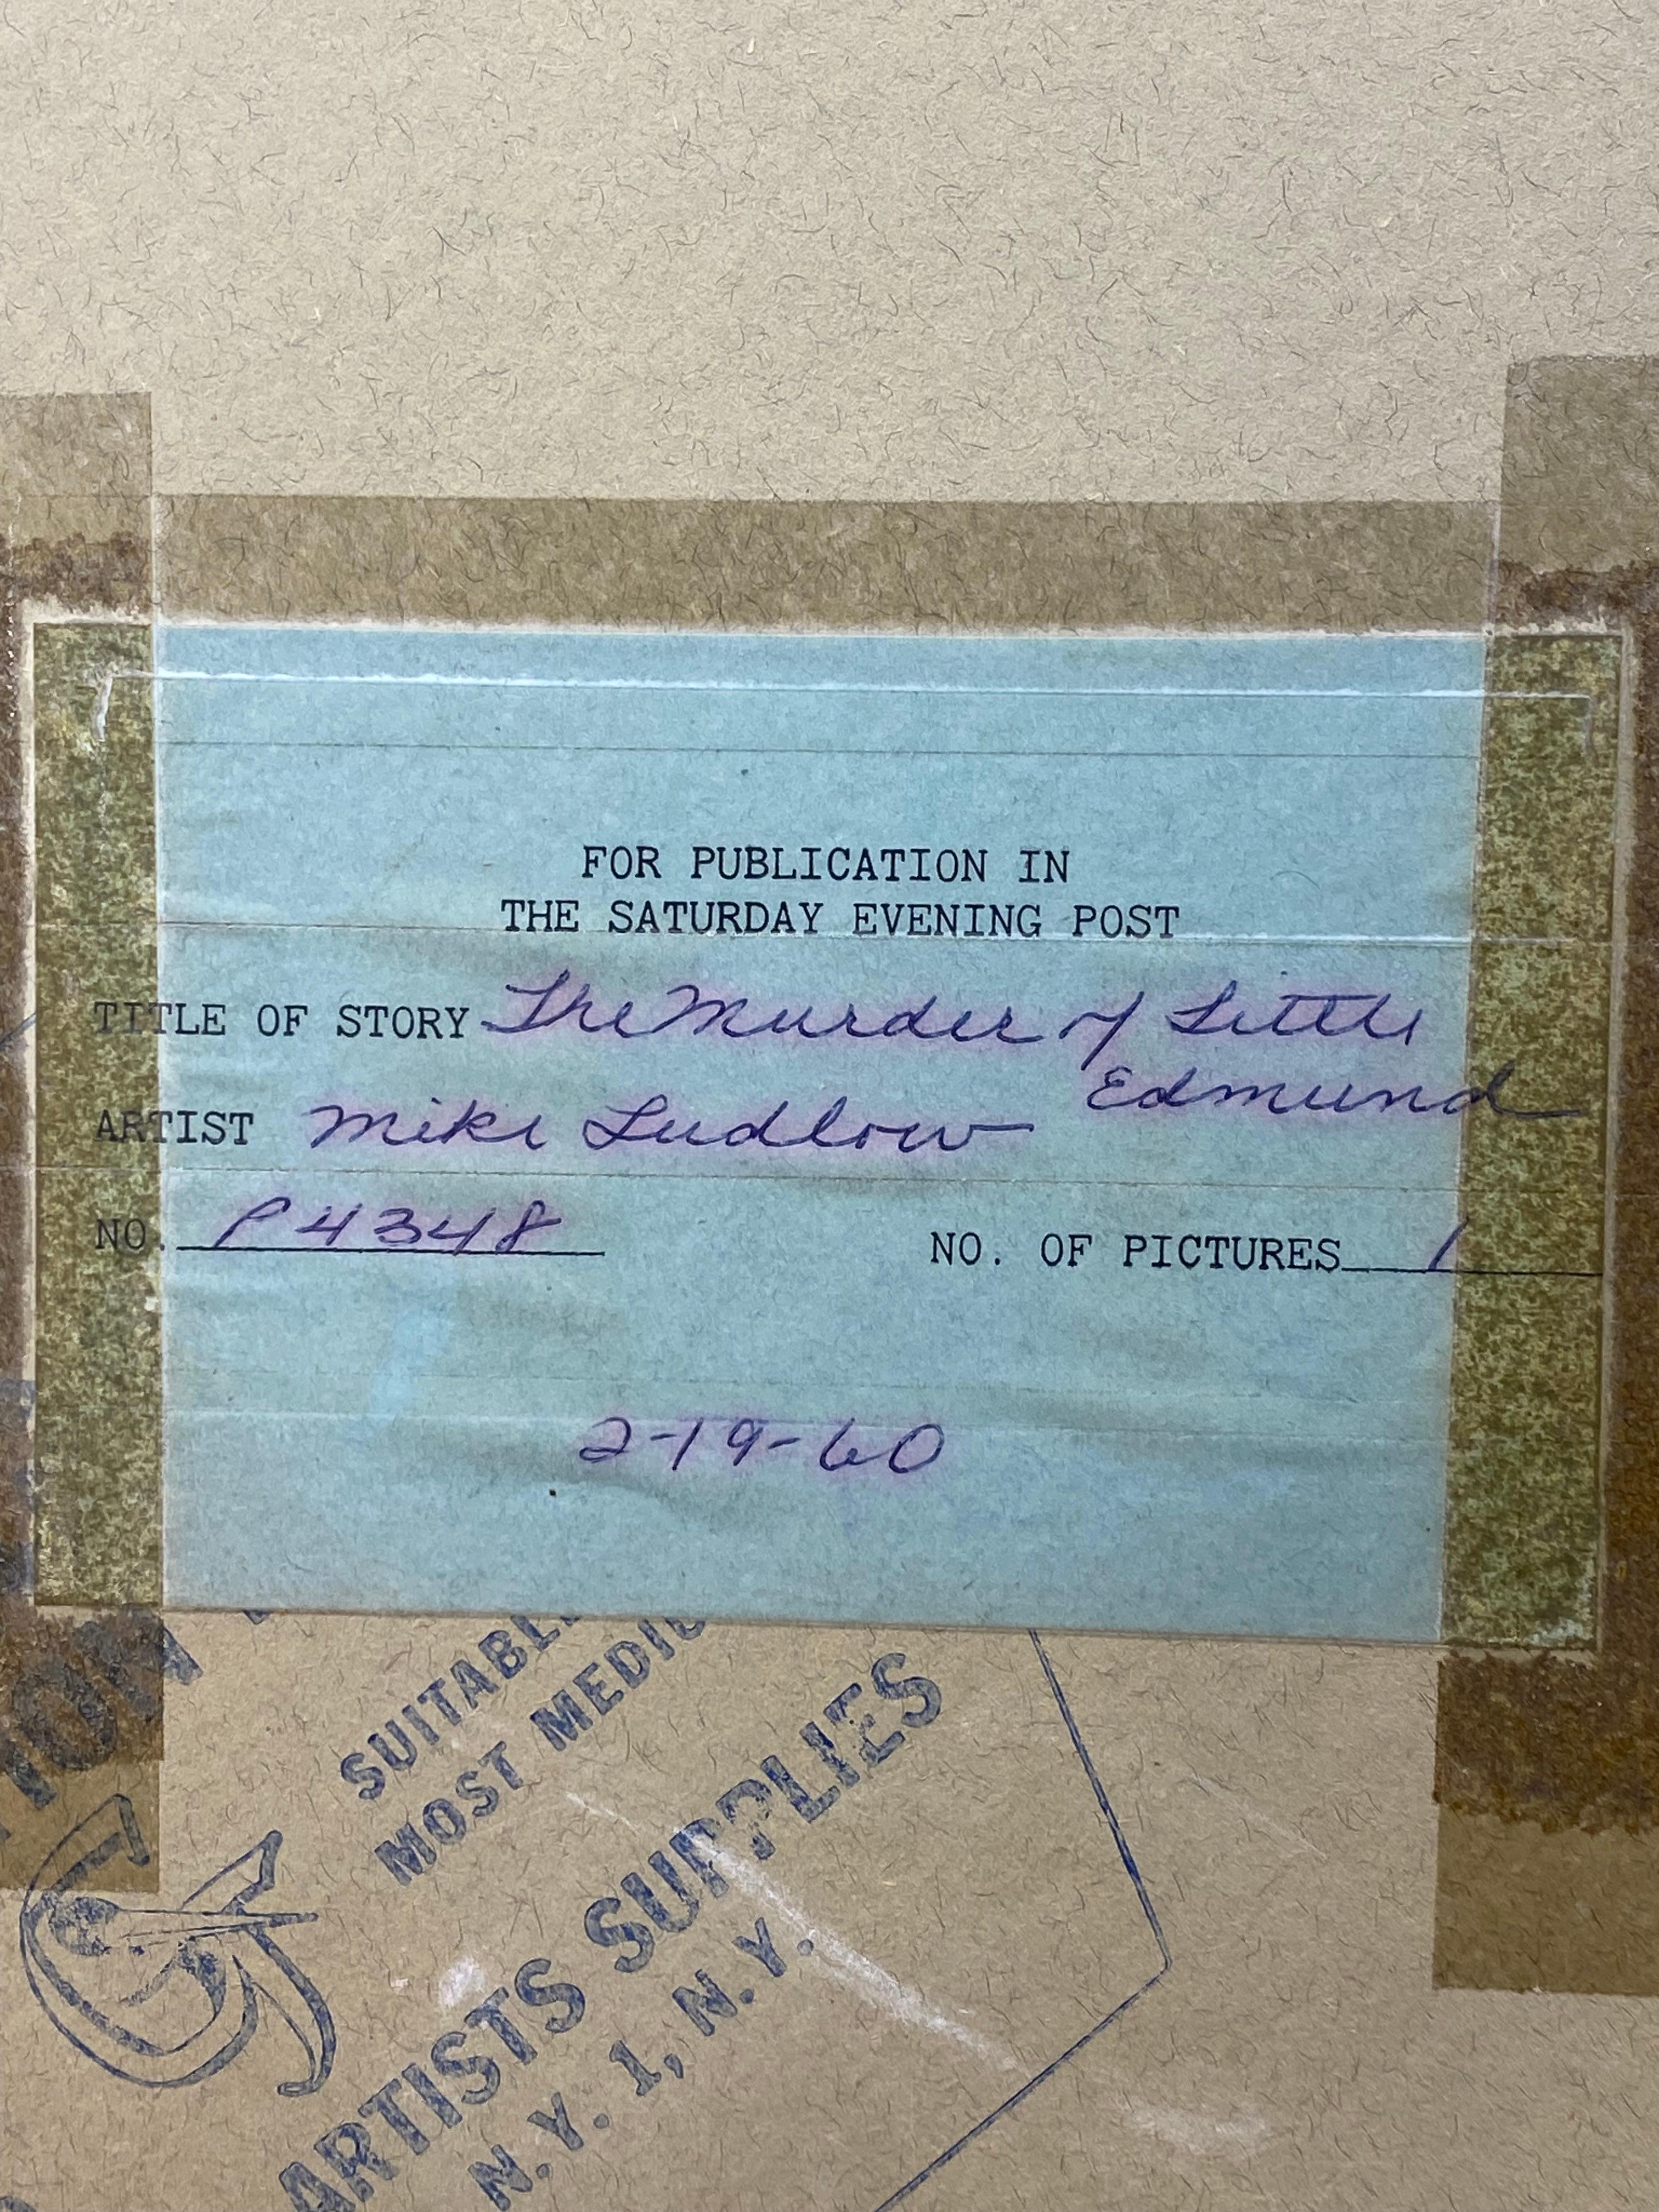 FOR PUBLICATION IN
THE SATURDAY EVENING POST
TITLE OF STORY The Murder of Little
Edmund
ARTIST Mike Ludlow
NO. P4348 NO. OF PICTURES 1
2-19-60
MOST
ARTISTS SUPPLIES
N.Y. 1, N.Y.